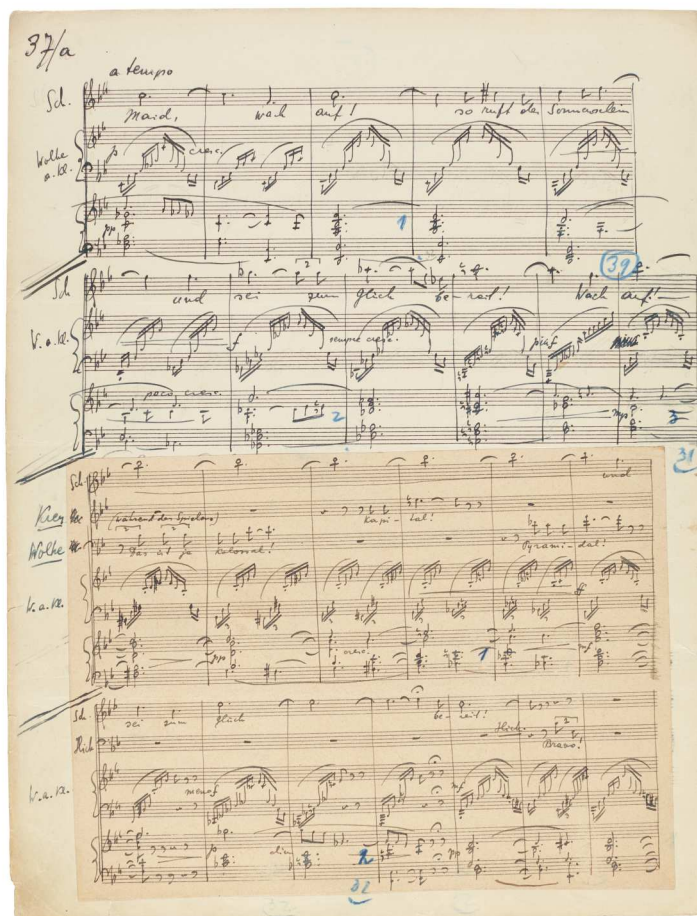 37/a
a tempo
Sch.
Maid, wach auf! so ruft der Sonnenschein
Wolke
a. Kl.
p cresc.
pp
1
39
Sch
und sei zum Glück be-reit! Wach auf!
W. a. Kl.
f sempre cresc. più f
poco cresc.
mp
2
3
31
Sch.
und
Krey
(während des Spielens)
Kapi-tal!
Wolke
Das ist ja kolossal! Pyrami-dal!
W. a. Kl.
ff
pp cresc.
1
Sch.
sei zum Glück be-reit!
Hich.
Bravo!
W. a. Kl.
meno f mf
p dim. pp
2
32